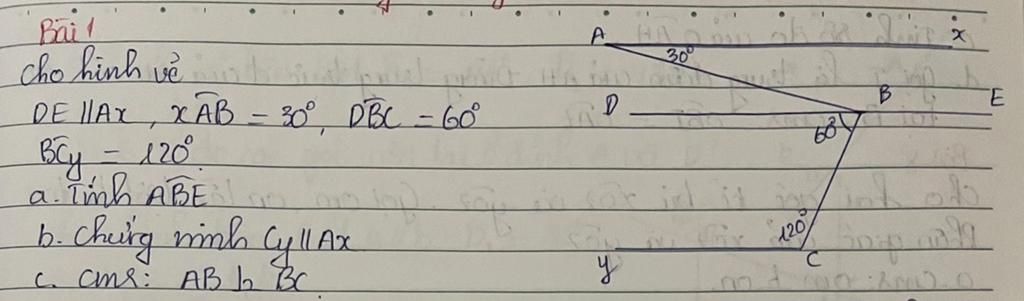 Bài 1
Cho hình vẽ
DE // Ax, xÂB = 30°, DB̂C = 60°
BĈy = 120°
a. Tính AB̂E
b. Chứng minh Cy // Ax
c. cmr: AB ⊥ BC
A x
30°
D B E
60°
120°
y C